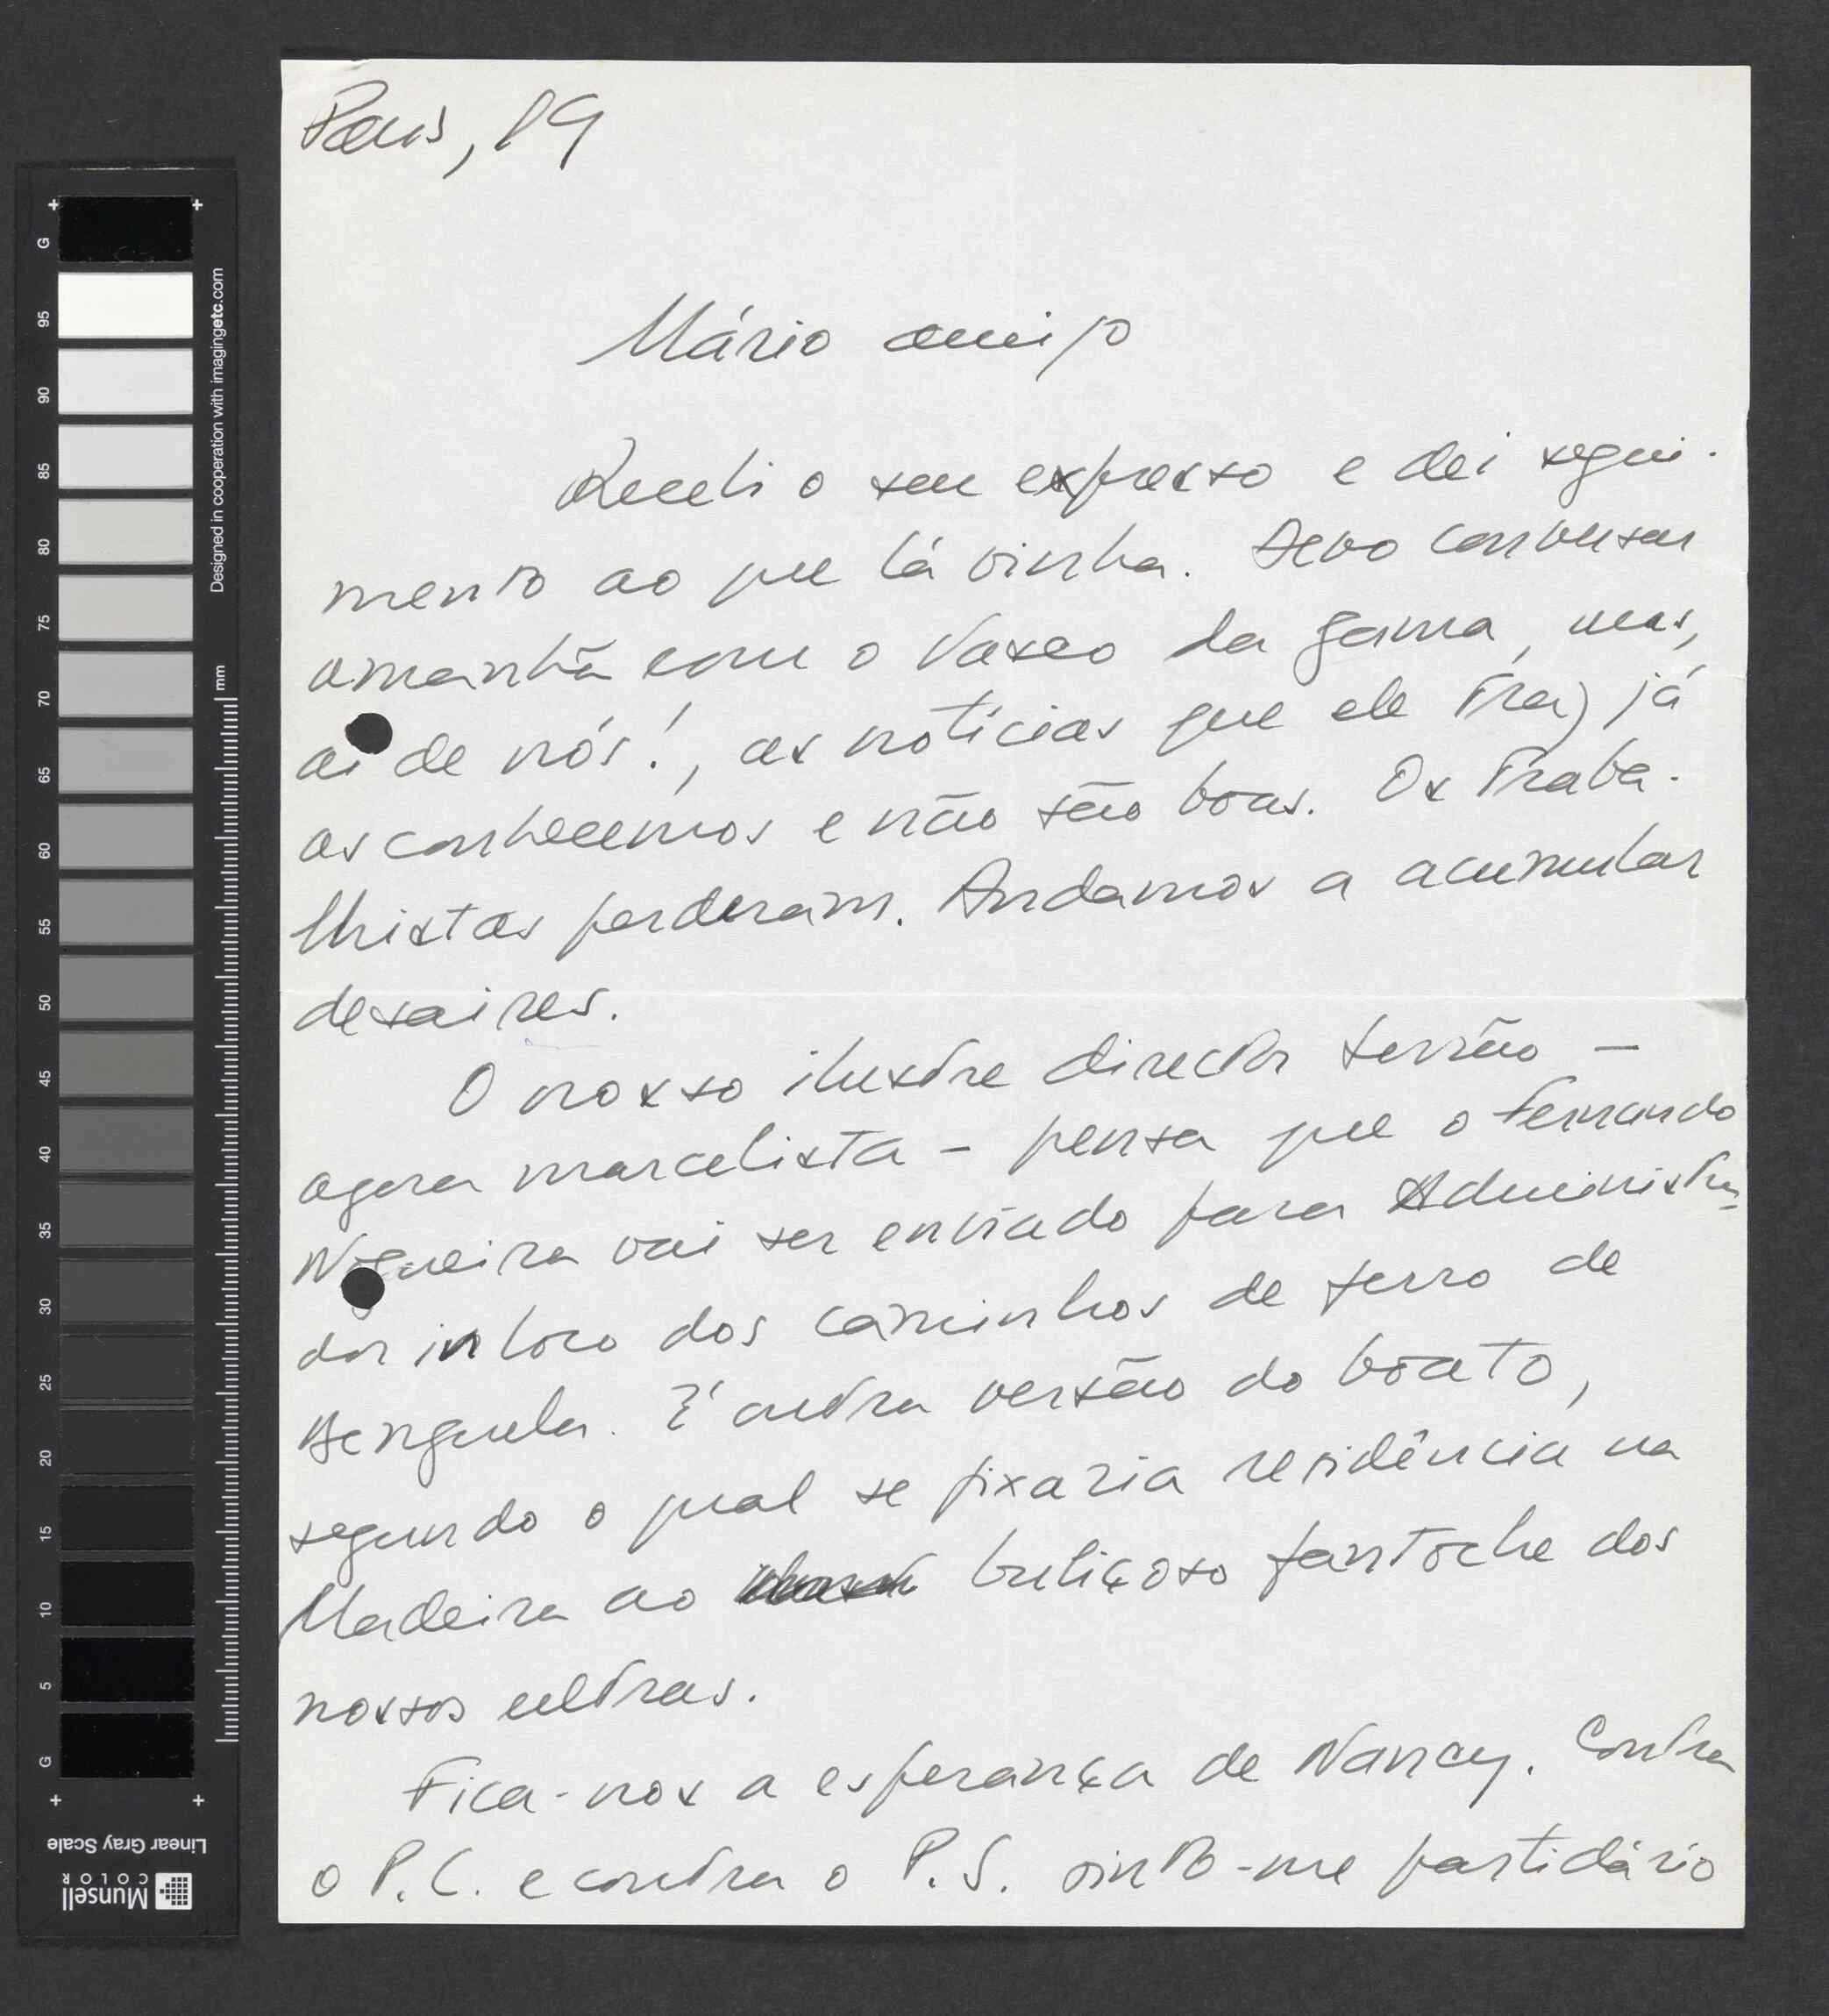 Paris, 19
Mário amigo
Recebi o seu expresso e dei segui-
mento ao que lá vinha. Devo conversar
amanhã com o Vasco da Gama, mas,
ai de nós!, as notícias que ele traz já
as conhecemos e não são boas. Os Traba-
lhistas perderam. Andamos a acumular
desaires.
O nosso ilustre director Serrão —
agora marcelista — pensa que o Fernando
Nogueira vai ser enviado para Administra-
dor in loco dos caminhos de ferro de
Benguela. É outra versão do boato,
segundo o qual se fixaria residência na
Madeira ao buliçoso fantoche dos
nossos ultras.
Fica-nos a esperança de Nancy. Contra
o P.C. e contra o P.S. sinto-me partidário
G
95
90
85
80
75
70
65
60
55
50
45
40
35
30
25
20
15
10
5
G
Designed in cooperation with imagingetc.com
mm
Linear Gray Scale
Munsell
COLOR